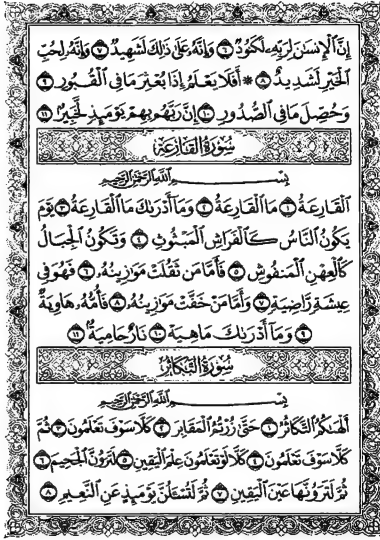 إِنَّ ٱلْإِنسَٰنَ لِرَبِّهِۦ لَكَنُودٌ ٦ وَإِنَّهُۥ عَلَىٰ ذَٰلِكَ لَشَهِيدٌ ٧ وَإِنَّهُۥ لِحُبِّ
ٱلْخَيْرِ لَشَدِيدٌ ٨ ۞ أَفَلَا يَعْلَمُ إِذَا بُعْثِرَ مَا فِي ٱلْقُبُورِ ٩
وَحُصِّلَ مَا فِي ٱلصُّدُورِ ١٠ إِنَّ رَبَّهُم بِهِمْ يَوْمَئِذٍ لَّخَبِيرٌۢ ١١
سُورَةُ القَارِعَةِ
بِسْمِ ٱللَّهِ ٱلرَّحْمَٰنِ ٱلرَّحِيمِ
ٱلْقَارِعَةُ ١ مَا ٱلْقَارِعَةُ ٢ وَمَآ أَدْرَىٰكَ مَا ٱلْقَارِعَةُ ٣ يَوْمَ
يَكُونُ ٱلنَّاسُ كَٱلْفَرَاشِ ٱلْمَبْثُوثِ ٤ وَتَكُونُ ٱلْجِبَالُ
كَٱلْعِهْنِ ٱلْمَنفُوشِ ٥ فَأَمَّا مَن ثَقُلَتْ مَوَٰزِينُهُۥ ٦ فَهُوَ فِي
عِيشَةٍ رَّاضِيَةٍ ٧ وَأَمَّا مَنْ خَفَّتْ مَوَٰزِينُهُۥ ٨ فَأُمُّهُۥ هَاوِيَةٌ
٩ وَمَآ أَدْرَىٰكَ مَا هِيَهْ ١٠ نَارٌ حَامِيَةٌۢ ١١
سُورَةُ التَّكَاثُرِ
بِسْمِ ٱللَّهِ ٱلرَّحْمَٰنِ ٱلرَّحِيمِ
أَلْهَىٰكُمُ ٱلتَّكَاثُرُ ١ حَتَّىٰ زُرْتُمُ ٱلْمَقَابِرَ ٢ كَلَّا سَوْفَ تَعْلَمُونَ ٣ ثُمَّ
كَلَّا سَوْفَ تَعْلَمُونَ ٤ كَلَّا لَوْ تَعْلَمُونَ عِلْمَ ٱلْيَقِينِ ٥ لَتَرَوُنَّ ٱلْجَحِيمَ ٦
ثُمَّ لَتَرَوُنَّهَا عَيْنَ ٱلْيَقِينِ ٧ ثُمَّ لَتُسْـَٔلُنَّ يَوْمَئِذٍ عَنِ ٱلنَّعِيمِ ٨